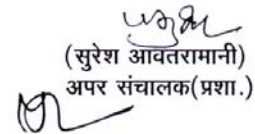 (सुरेश आवतरामानी)
अपर संचालक(प्रशा.)